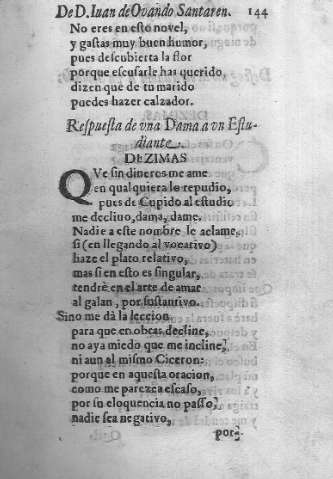 De D. Iuan de Ovando Santaren. 144
No eres en esto novel,
y gastas muy buen humor,
pues descubierta la flor
porque escusarle has querido
dizen que de tu marido
puedes hazer calzador.
Respuesta de vna Dama a vn Estu-
diante.
DEZIMAS
QVe sin dineros me ame
en qualquiera lo repudio,
pues de Cupido al estudio
me declino, dama, dame.
Nadie a este nombre le aclame,
si (en llegando al vocativo)
haze el plato relativo,
mas si en esto es singular,
tendrè en el arte de amar
al galan, por sustantivo.
Sino me dà la leccion,
para que en obras decline,
no aya miedo que me incline,
ni aun al mismo Ciceron:
porque en aquesta oracion,
como me parezca escaso,
por su eloquencia no passo,
nadie sea negativo,
por-